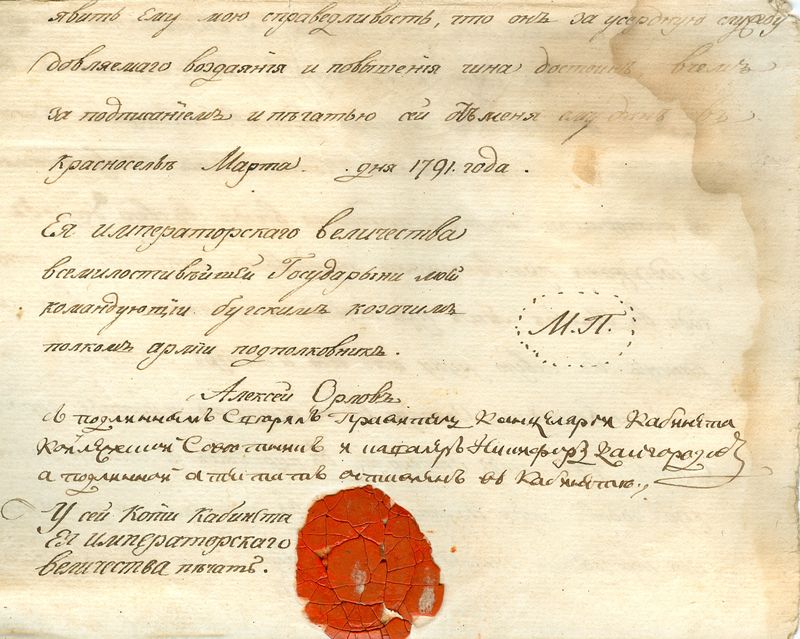 явить ему мою справедливость, что онъ за усердную службу
довляемаго воздаянія и повышенія чина достоинъ вчемъ
за подписаніемъ и печатью сей отъ меня
красносель Марта. .дня 1791. года.
Ея императорскаго величества
всемилостивѣйшей Государыни моей
командующій бугскимъ козачимъ
полкомъ арміи подполковникъ.
М.П.
Алексей Орловъ
съ подлиннымъ Канцеляріи Кабинета
и Никифоръ
а подлинной оставленъ въ Кабинетѣ
У сей копи Кабинета
Ея императорскаго
величества печать.